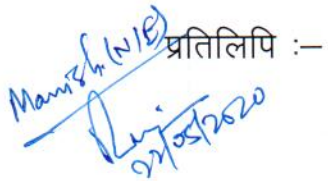 Manish (N/E)
प्रतिलिपि :–
22/05/2020